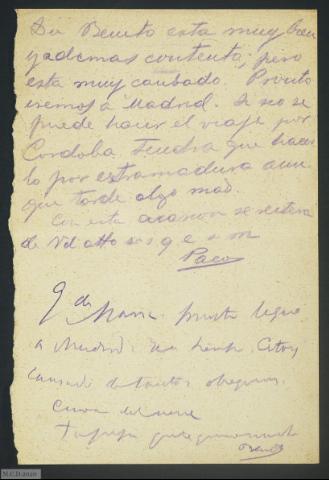 Dn Benito esta muy bien
y ademas contento; pero
esta muy cansado. Pronto
iremos a Madrid. Si no se
puede hacer el viaje por
Cordoba tendra que hacer
lo por estramadura aun
que tarde algo mas.
Con esta ocasion se reitera
de Vd atto s s q e s m
Paco
Qda pronto llego
a Madrid. Estoy
cansado de tantos obsequios.
Tu que quiere mucho